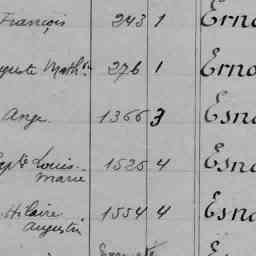 François 243 1 Erno
guste Math 276 1 Erno
Ange 1366 3 Esna
Louis 1526 4 Esna
Marie
Hilaire 1554 4 Esna
Augustin